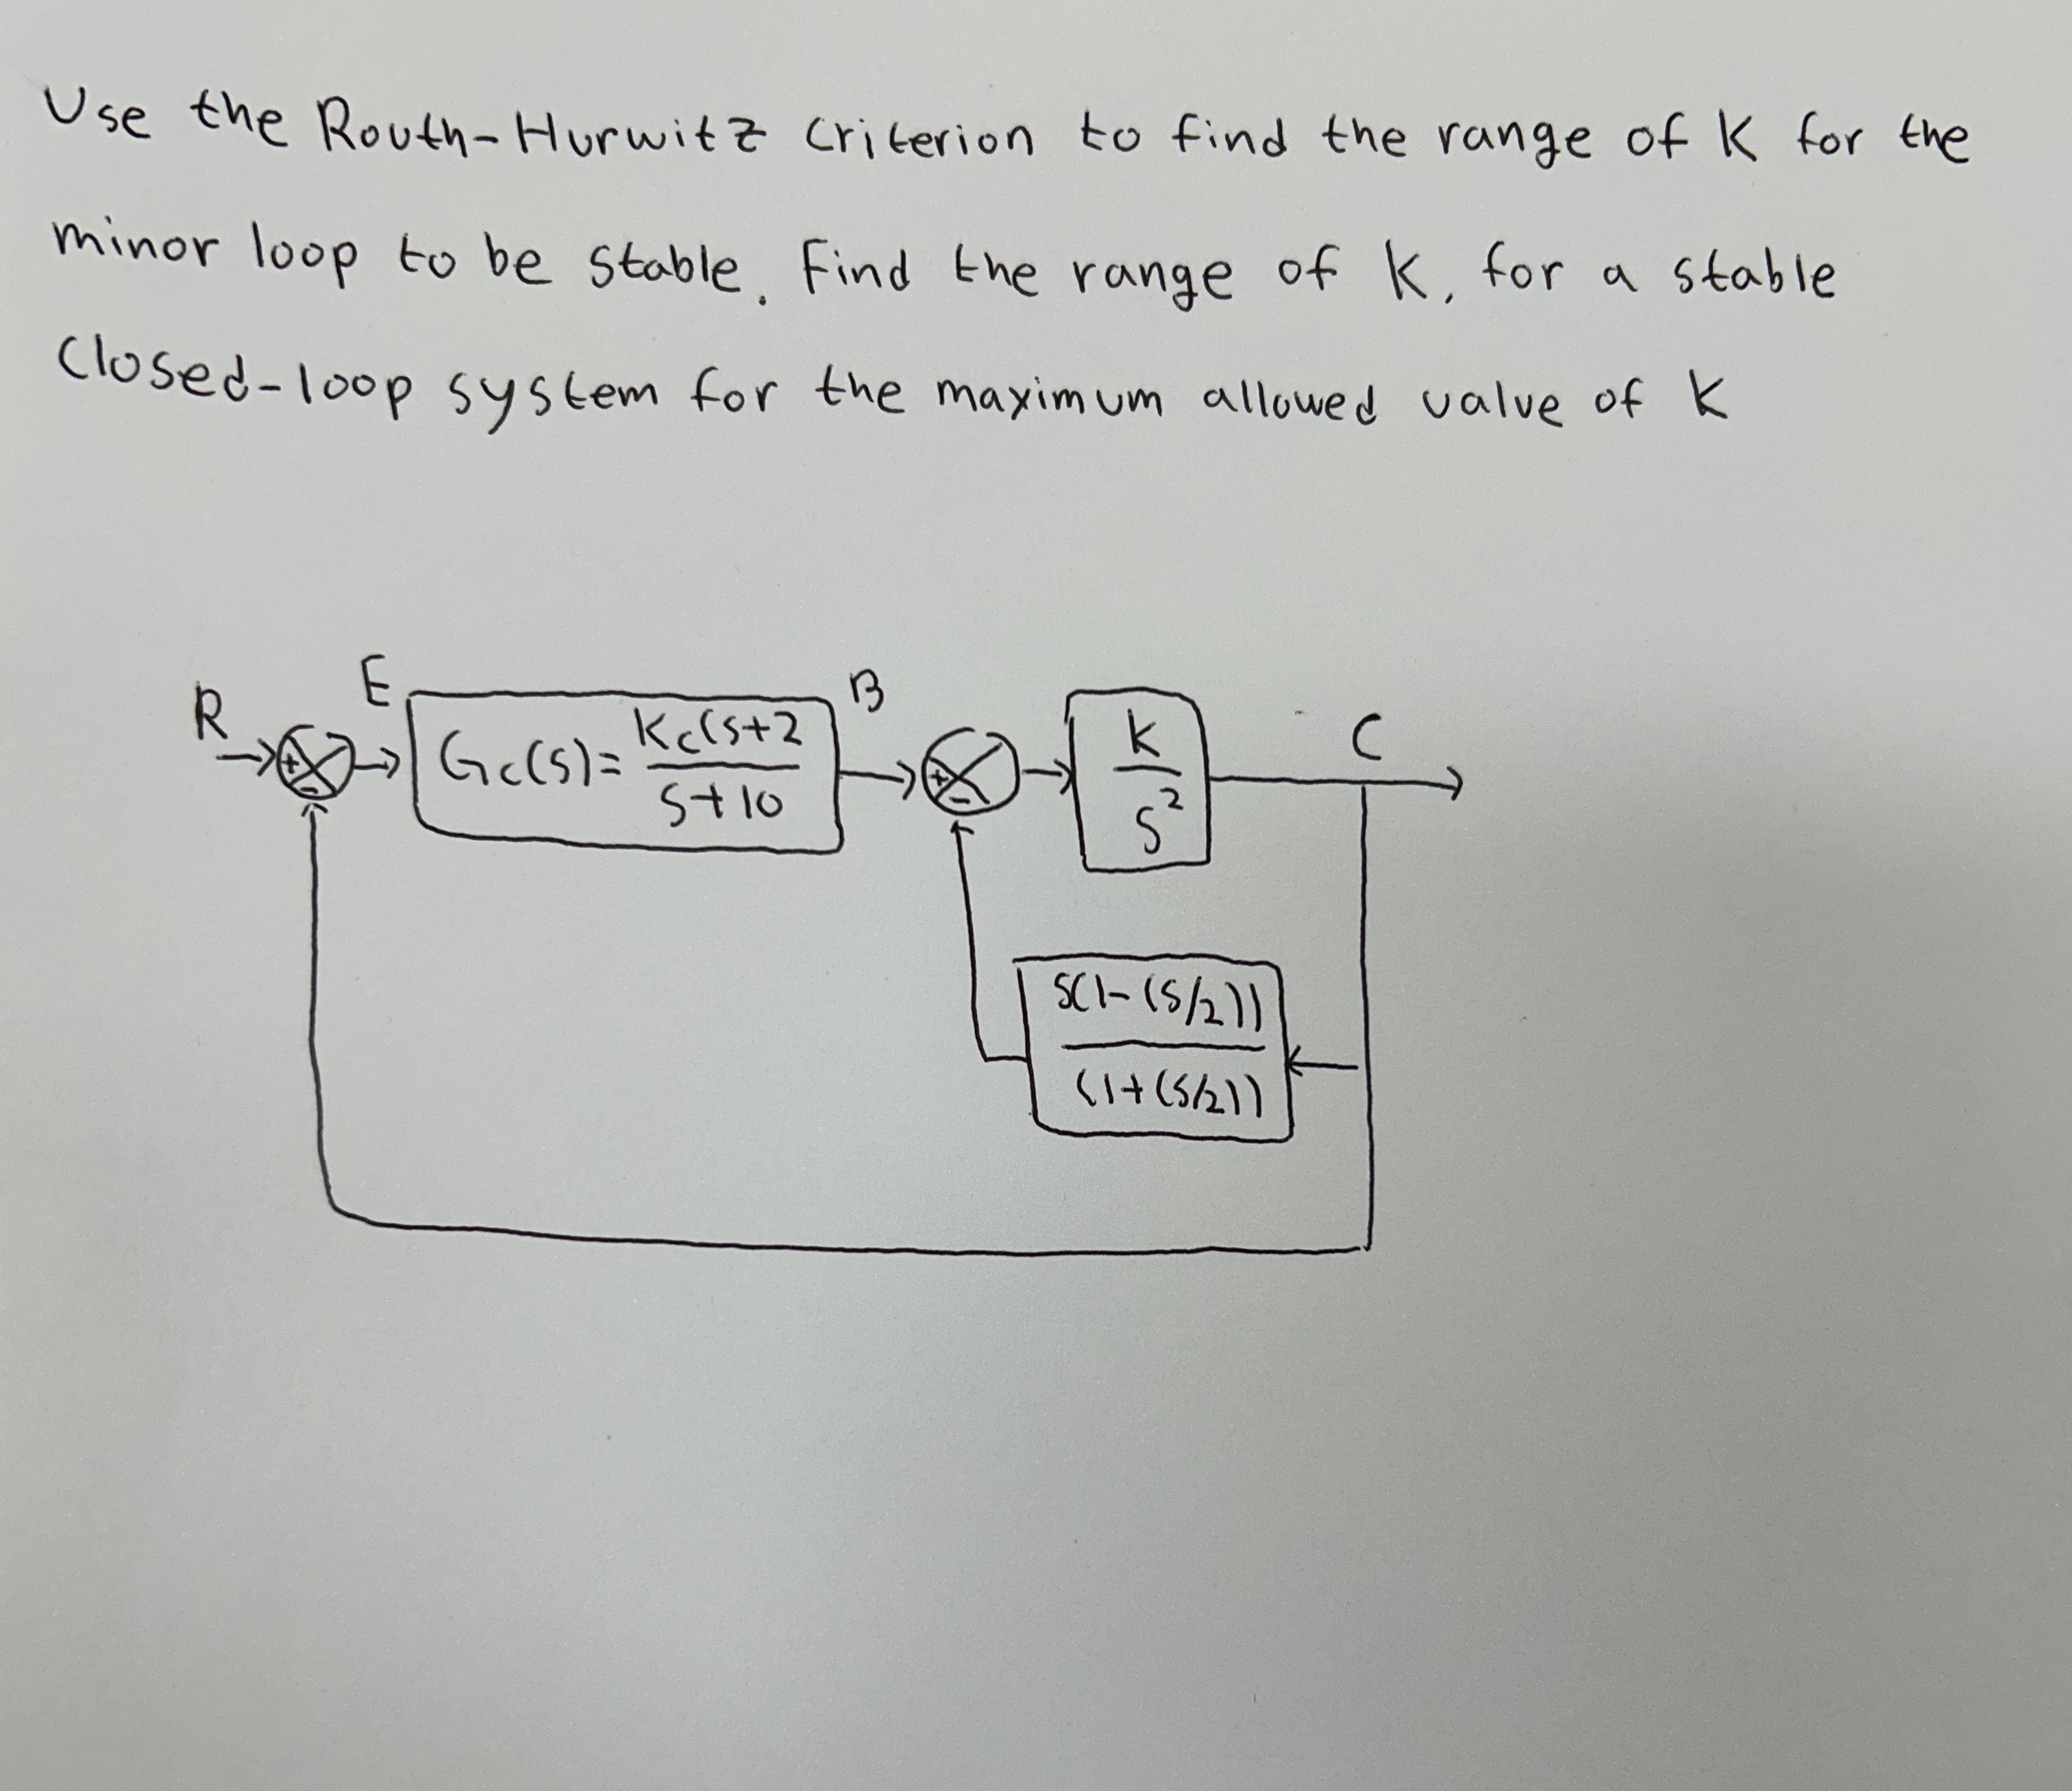 Use the Routh-Hurwitz criterion to find the range of K for the
minor loop to be stable. Find the range of K, for a stable
Closed-loop system for the maximum allowed value of K
R
E
Gc(s)= Kc(s+2 / s+10
B
K / s²
C
s(1-(s/2)) / (1+(s/2))
+
-
+
-